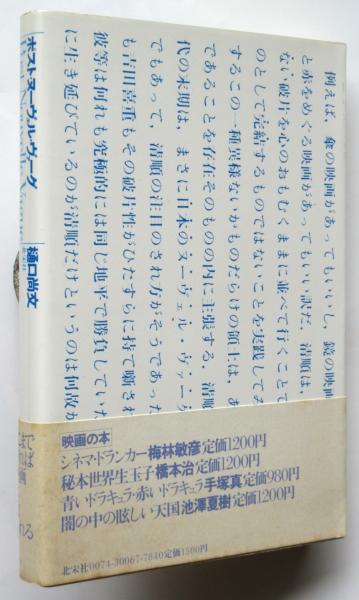 ポスト・ヌーヴェル・ヴーグ
樋口尚文
例えば、傘の映画があってもいいし、鏡の映画
と赤をめぐる映画があってもいい訳だ。清順は、
ない破片を心のおもむくままに並べて行くことで
のとして完結するものではないことを実践してみ
するこの一種異様ないかものだらけの領土は、あ
であることを存在そのものの内に主張する。清順
代の末期は、まさに日本のヌーヴェル・ヴァーグ
でもあって、清順の注目のされ方がそうであった
も吉田喜重もその破片性がひたすらに持て囃され
彼等は何れも究極的には同じ地平で勝負していた
に生き延びているのが清順だけというのは何故か
映画の本
シネマ・ドランカー梅林敏彦定価1200円
秘本世界生玉子橋本治定価1200円
青いドラキュラ・赤いドラキュラ手塚真定価980円
闇の中の眩しい天国池澤夏樹定価1200円
北宋社0074-30067-7840定価1500円